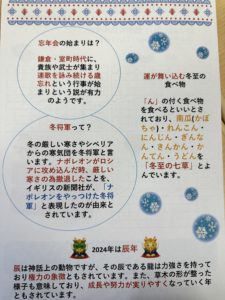 忘年会の始まりは？
鎌倉・室町時代に、
貴族や武士が集まり
連歌を詠み続ける歳
忘れという行事が始
まりという説が有力
のようです。
運が舞い込む冬至の
食べ物
「ん」の付く食べ物
を食べるといいとさ
れており、南瓜(かぼ
ちゃ)・れんこん・
にんじん・ぎんな
ん・きんかん・か
んてん・うどんを
「冬至の七草」とよ
んでいます。
冬将軍って？
冬の厳しい寒さやシベリア
からの寒気団を冬将軍と言い
ます。ナポレオンがロシ
アに攻め込んだ時、厳しい
寒さの為撤退したことを、
イギリスの新聞社が、「ナ
ポレオンをやっつけた冬将
軍」と表現したのが由来と
されています。
2024年は辰年
辰は神話上の動物ですが、その辰である龍は力強さを持って
おり権力の象徴ともされています。また、草木の形が整った
様子も意味しており、成長や努力が実りやすくなっていく年
ともされています。